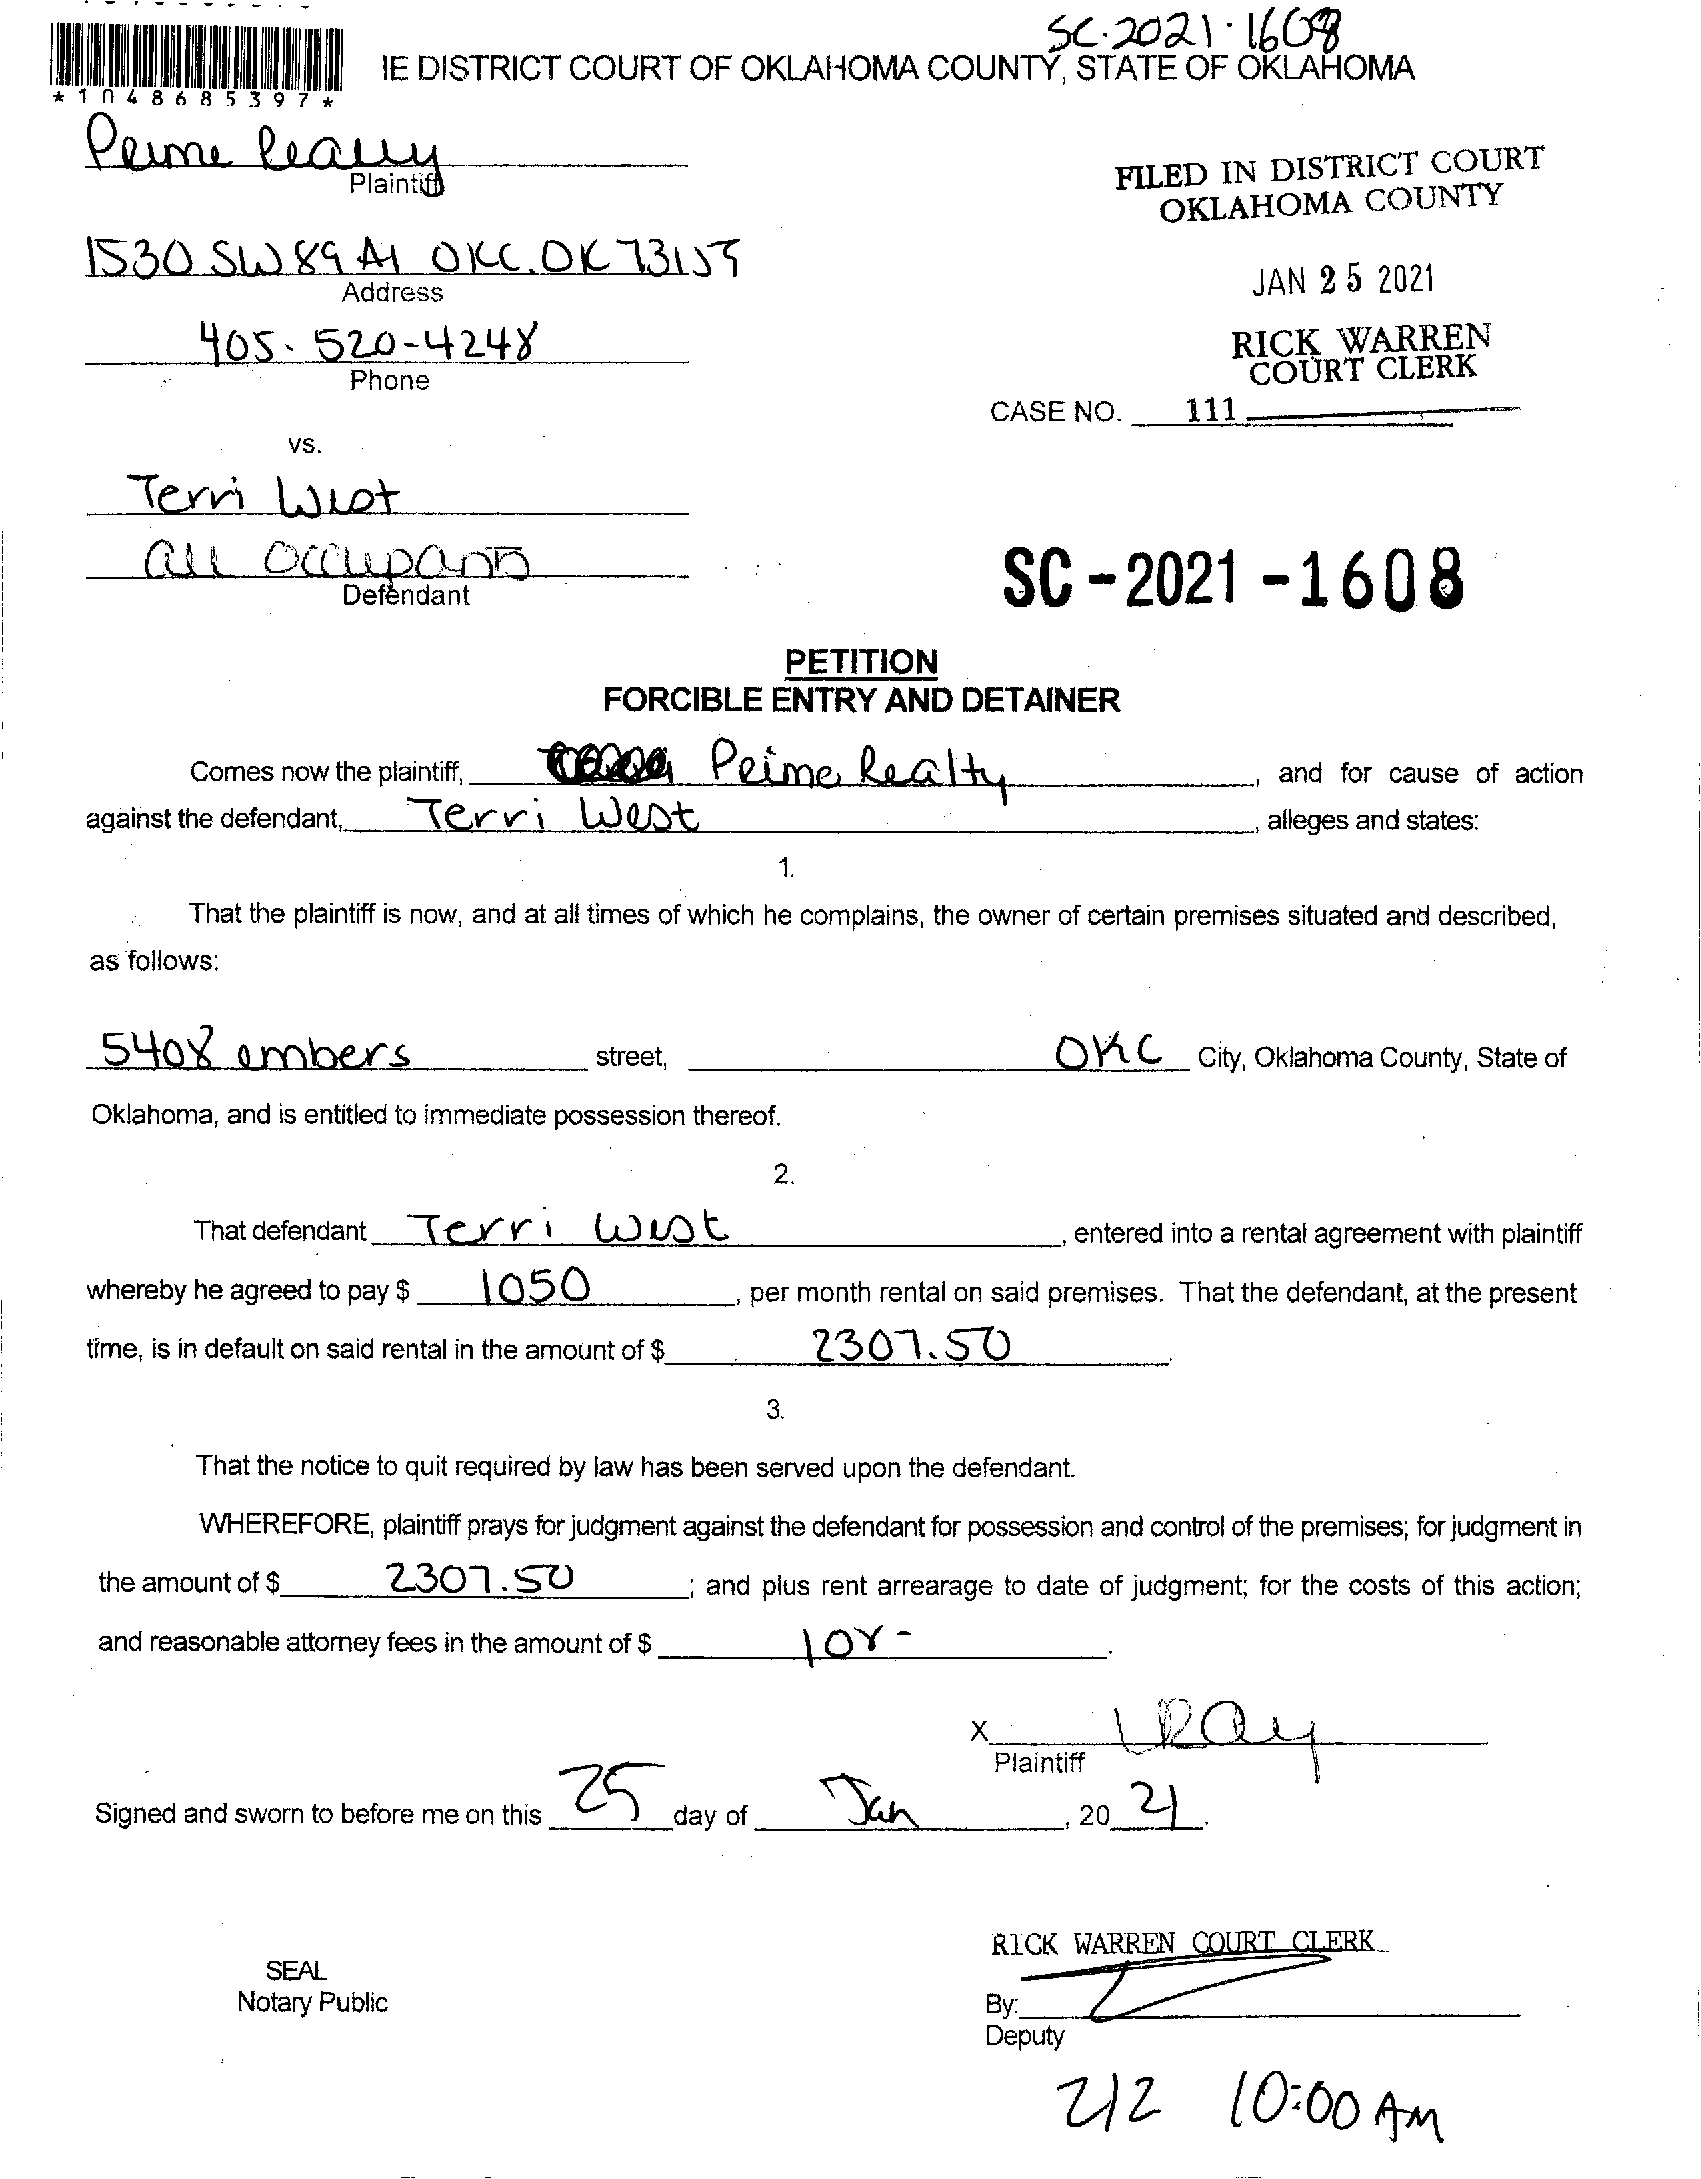 SC-2021-1608
*1048685397*
IE DISTRICT COURT OF OKLAHOMA COUNTY, STATE OF OKLAHOMA
Prime Realty
Plaintiff
FILED IN DISTRICT COURT
OKLAHOMA COUNTY
1530 SW 89 A1 OKC. OK 73159
Address
JAN 25 2021
405-520-4248
Phone
RICK WARREN
COURT CLERK
CASE NO. 111
vs.
Terri West
all occupants
Defendant
SC-2021-1608
PETITION
FORCIBLE ENTRY AND DETAINER
Comes now the plaintiff, Prime Realty, and for cause of action
against the defendant, Terri West, alleges and states:
1.
That the plaintiff is now, and at all times of which he complains, the owner of certain premises situated and described,
as follows:
5408 embers street, OKC City, Oklahoma County, State of
Oklahoma, and is entitled to immediate possession thereof.
2.
That defendant Terri West, entered into a rental agreement with plaintiff
whereby he agreed to pay $ 1050, per month rental on said premises. That the defendant, at the present
time, is in default on said rental in the amount of $ 2307.50
3.
That the notice to quit required by law has been served upon the defendant.
WHEREFORE, plaintiff prays for judgment against the defendant for possession and control of the premises; for judgment in
the amount of $ 2307.50; and plus rent arrearage to date of judgment; for the costs of this action;
and reasonable attorney fees in the amount of $ 108-.
X
Plaintiff
Signed and sworn to before me on this 25 day of Jan, 20 21.
RICK WARREN COURT CLERK
SEAL
Notary Public
By:
Deputy
2/2 10:00 AM